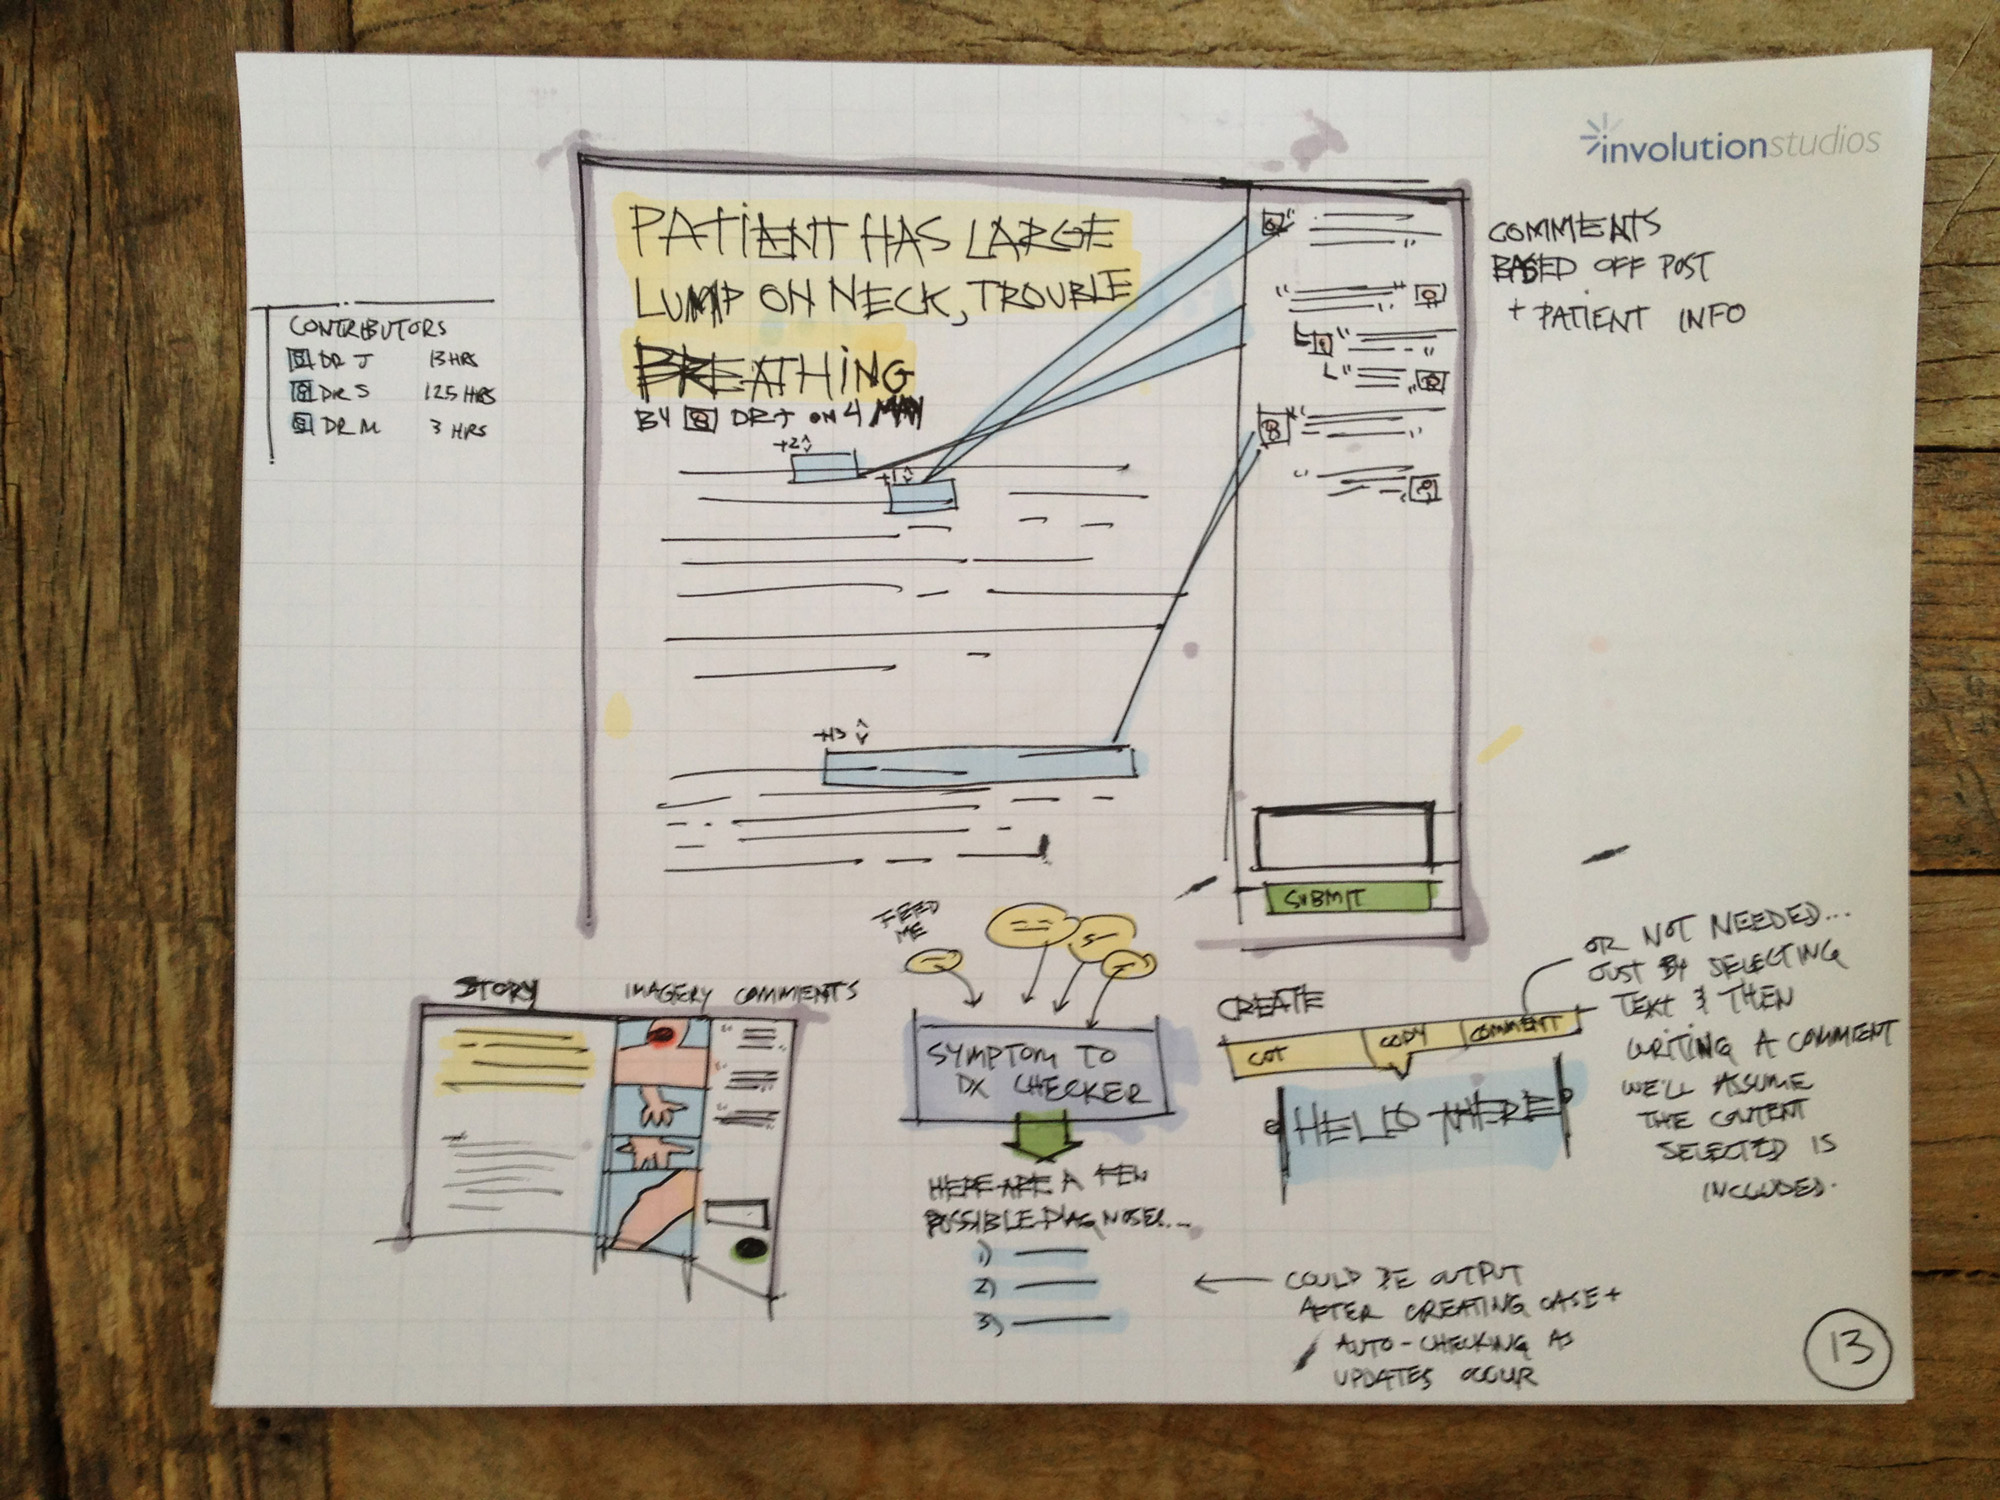 involutionstudios
PATIENT HAS LARGE
LUMP ON NECK, TROUBLE
BREATHING
BY DR J ON 4 MAY
COMMENTS
BASED OFF POST
+ PATIENT INFO
CONTRIBUTORS
DR J 13 HRS
DR S 125 HRS
DR M 3 HRS
+2
+1
+13
SUBMIT
STORY IMAGERY COMMENTS
FEED
ME
SYMPTOM TO
DX CHECKER
HERE ARE A FEW
POSSIBLE DIAGNOSES...
1)
2)
3)
COULD BE OUTPUT
AFTER CREATING CASE +
AUTO-CHECKING AS
UPDATES OCCUR
CREATE
CUT COPY COMMENT
HELLO THERE
OR NOT NEEDED...
JUST BY SELECTING
TEXT & THEN
WRITING A COMMENT
WE'LL ASSUME
THE CONTENT
SELECTED IS
INCLUDED.
13